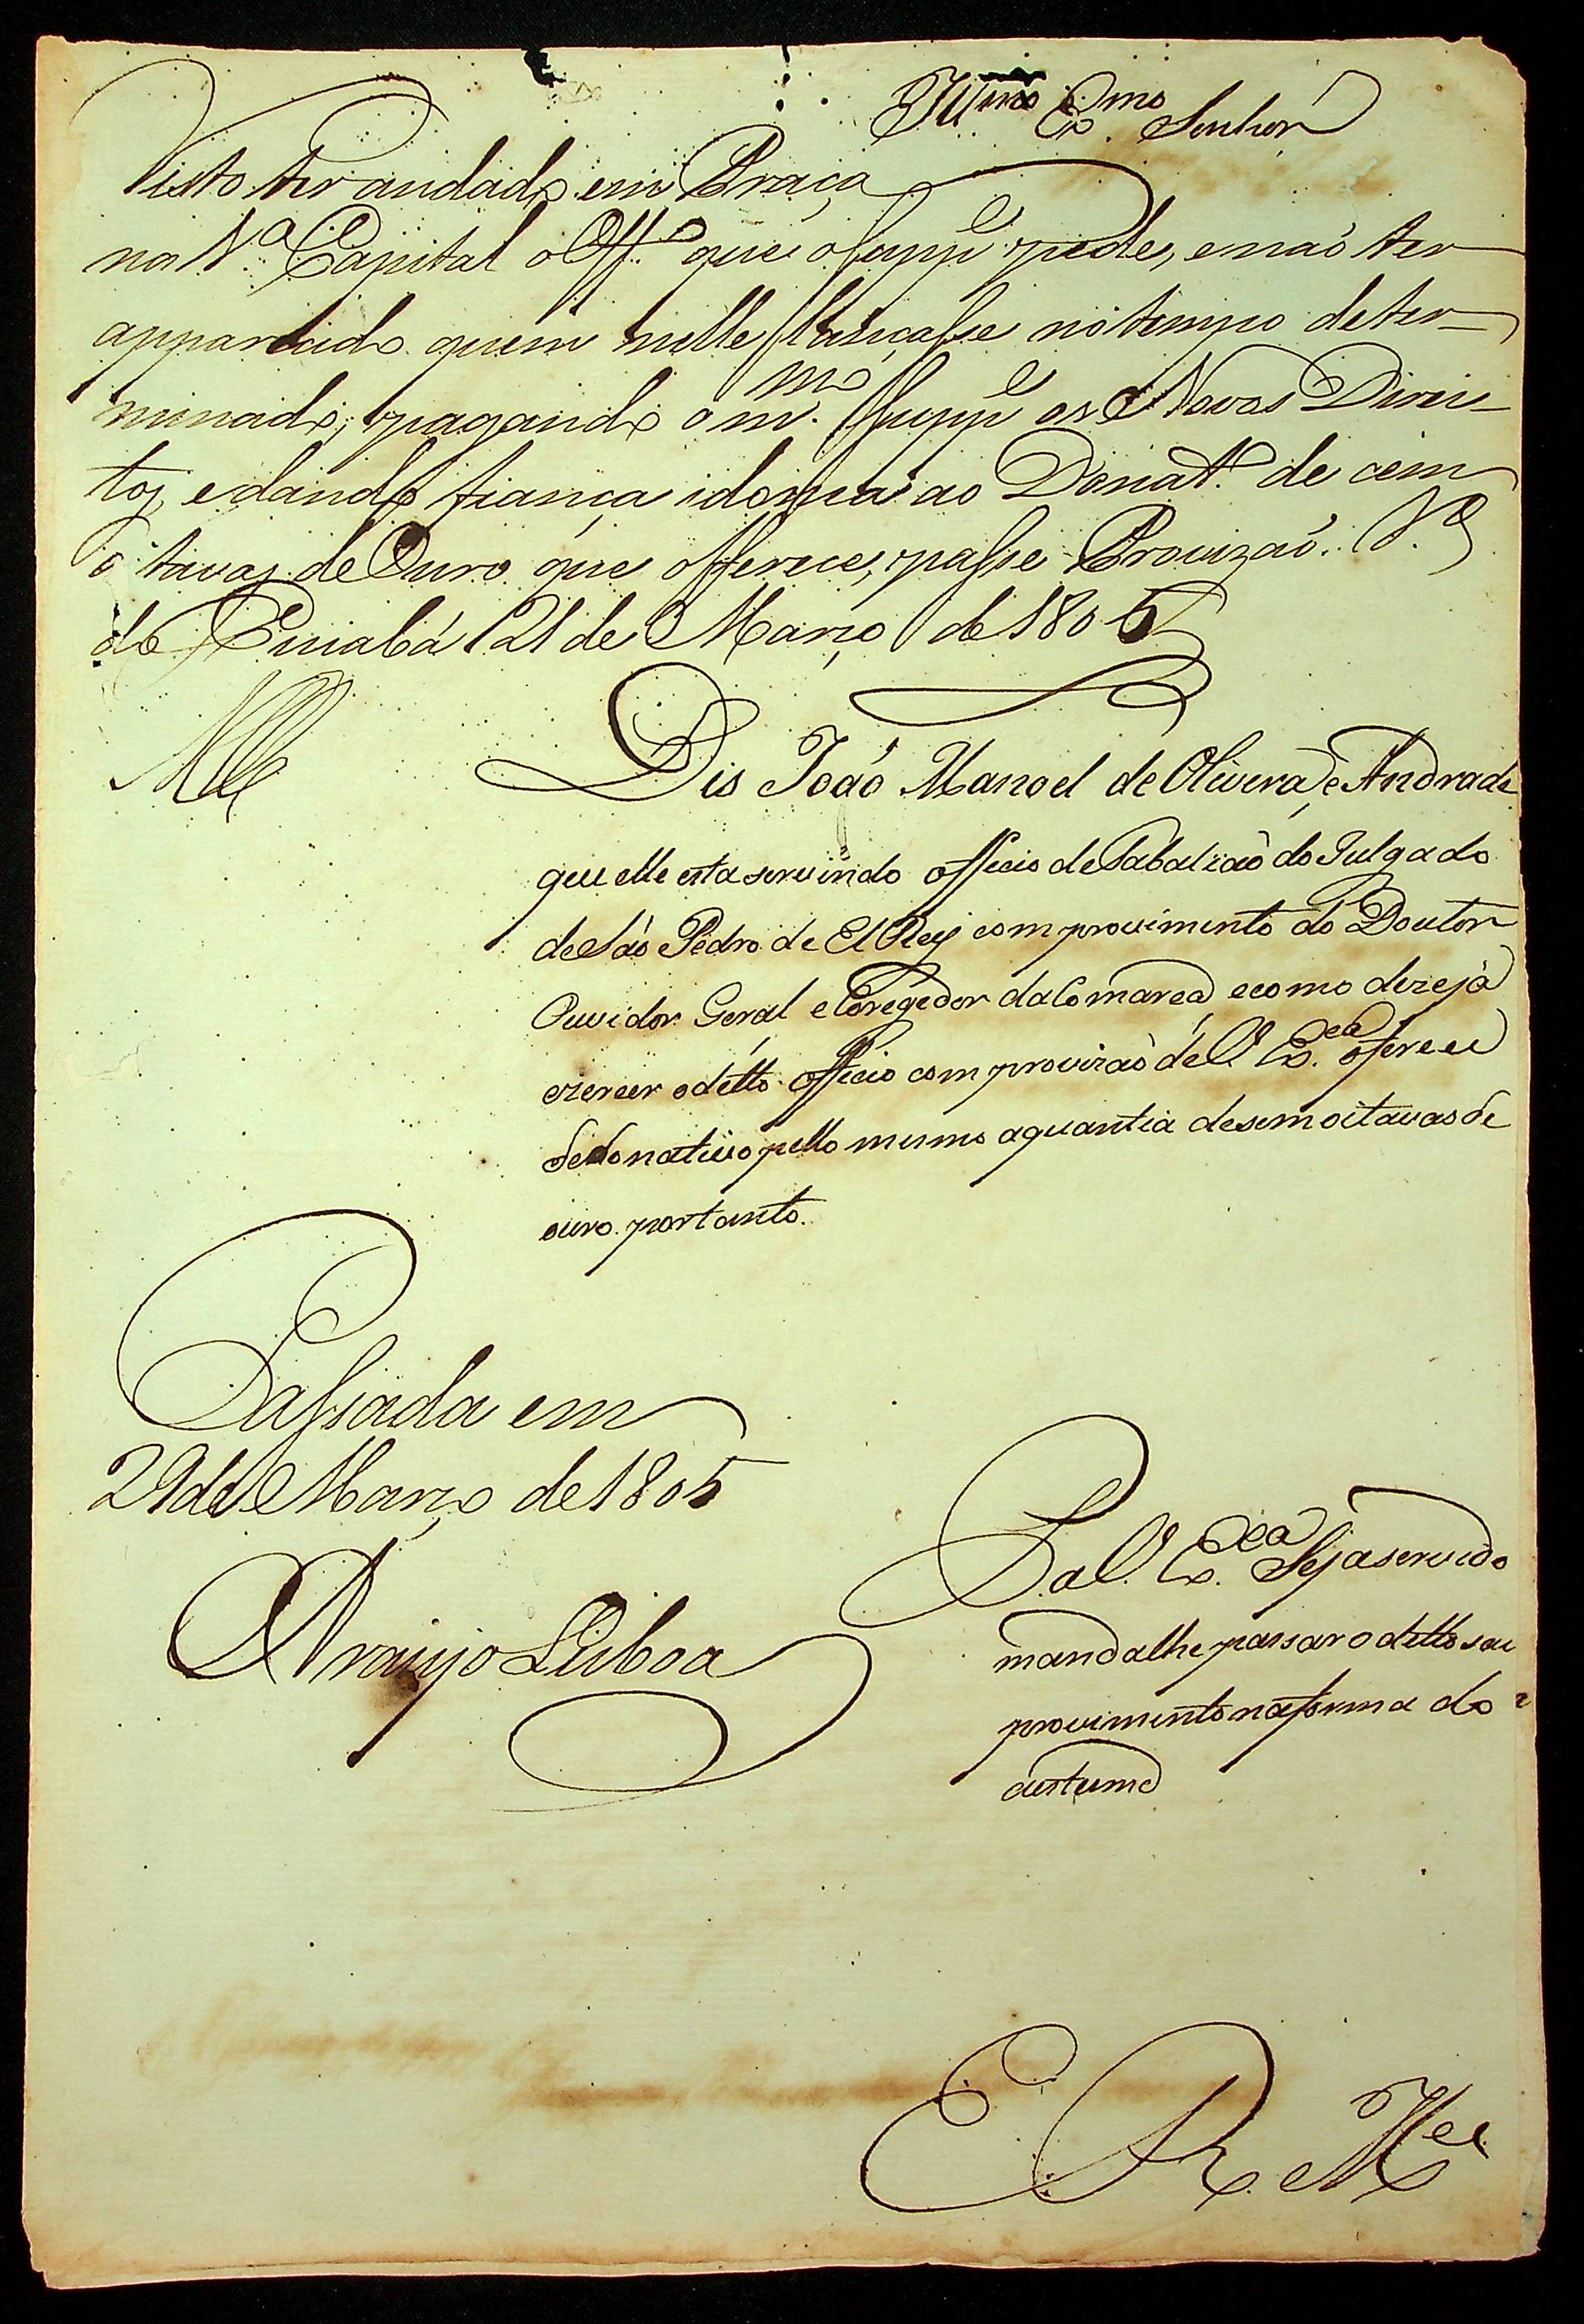 Ill.mo Ex.mo Senhor
Visto ter andado em Praça
na V.a Capital o Off.o que o supp.e pede, e naõ ter
apparecido quem nelle lançasse no tempo deter-
minado, pagando o m.mo supp.e os Novos Direi-
tos, e dando fiança idonea ao Donat.o de cem
oitavas de Ouro que offerece, passe Provizaõ. V.a
do Cuiabá 21 de Março de 1805
Dis Joaõ Manoel de Olivera, e Andrade
que elle esta servindo officio de Tabaliaõ do Julgado
de Saõ Pedro de El Rey com provimento do Doutor
Ouvidor Geral e Coregedor da Comarca, e como dezeja
exercer o ditto officio com provizaõ de V. Ex.ca oferece
de donativo pello mesmo a quantia de sem oitavas de
ouro portanto.
Passada em
29 de Março de 1805
Araujo Lisboa
P. a V. Ex.ca Seja servido
mandalhe passar o ditto seu
provimento na forma do
custume
E. R. M.ce